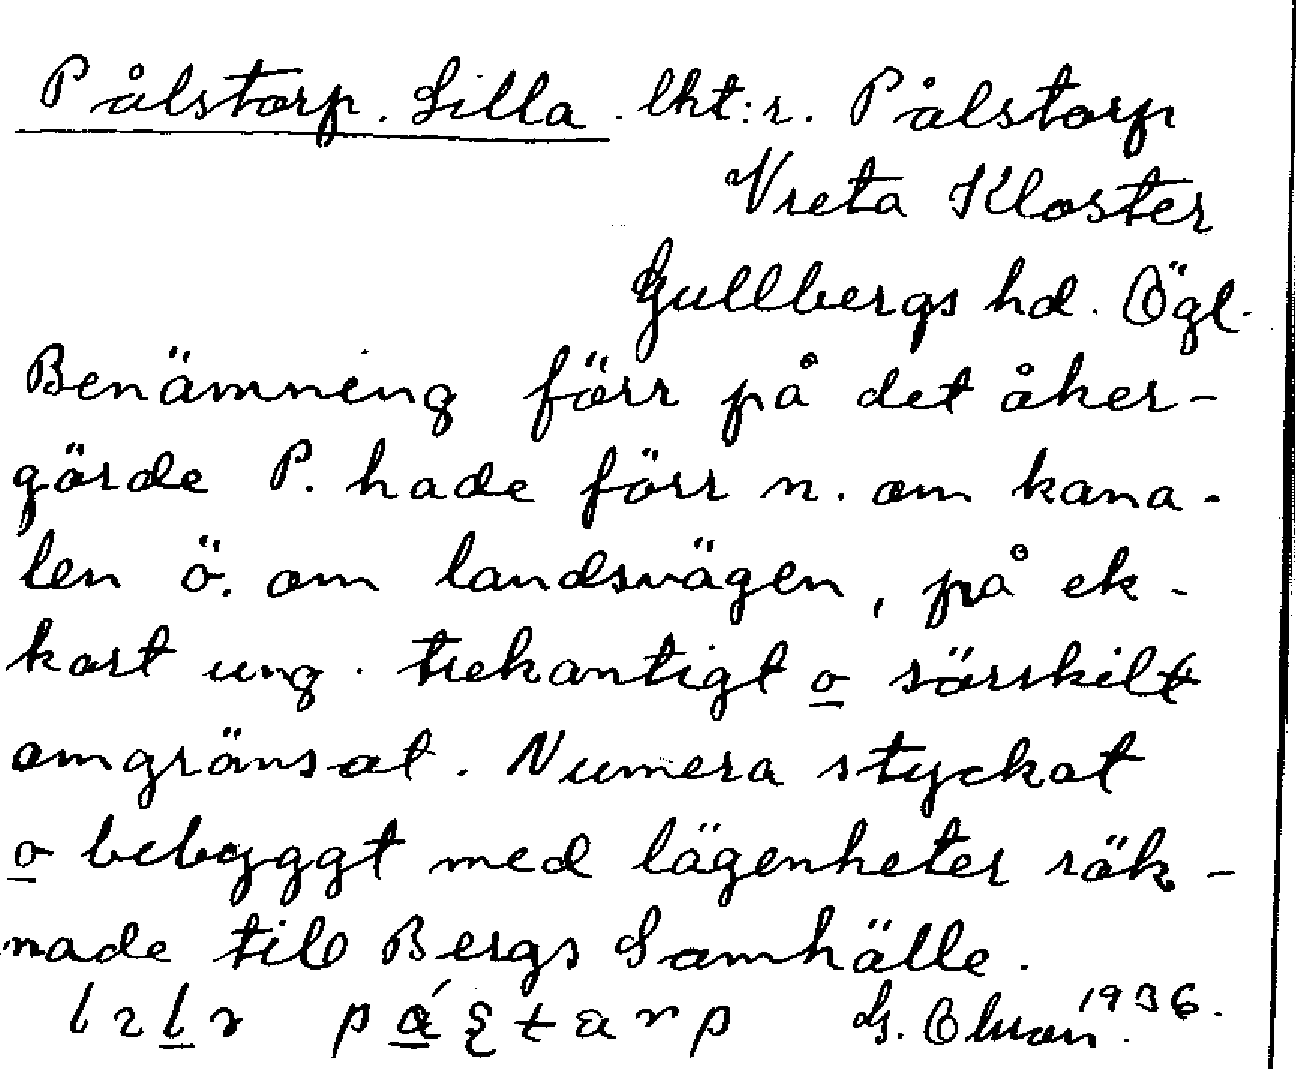 Pålstorp. Lilla. lht:r. Pålstorp
Vreta Kloster
Gullbergs hd. Ögl.
Benämning förr på det åker-
gärde P. hade förr n. om kana-
len ö. om landsvägen, på ek-
kart ung. trekantigt o särskilt
omgränsat. Numera styckat
o bebyggt med lägenheter räk-
nade till Bergs Samhälle.
1936.